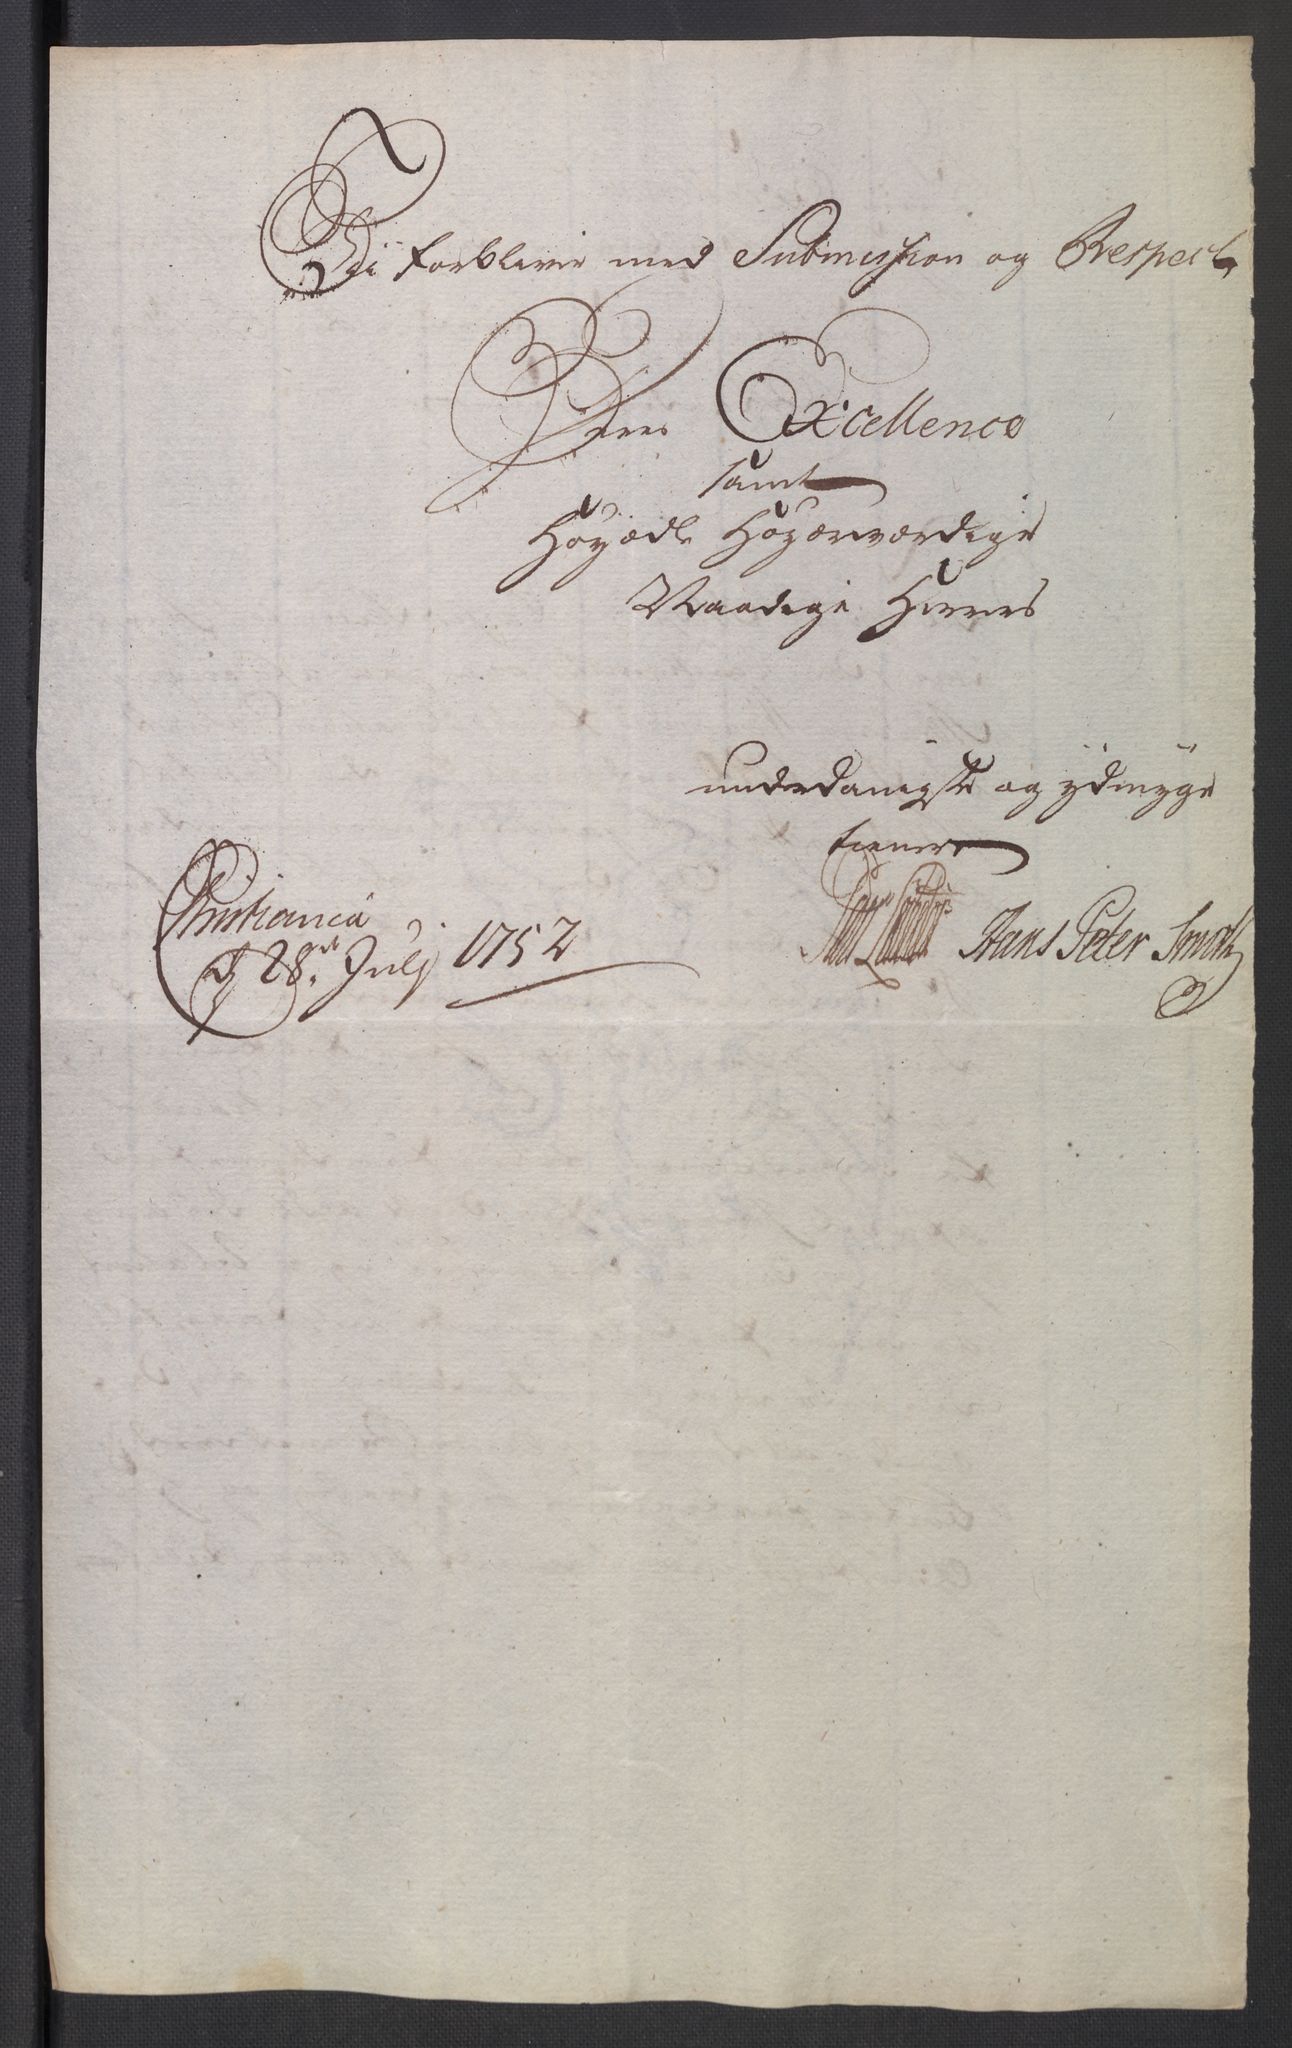 Vi forblive med Submission og Respect
Deres Excellence
samt
Høyædle Høyærværdige
Naadige Herres
underdanigste og ÿdmÿge
tienere
Christiania
d 28de Julj 1752
Hans Peter Smith